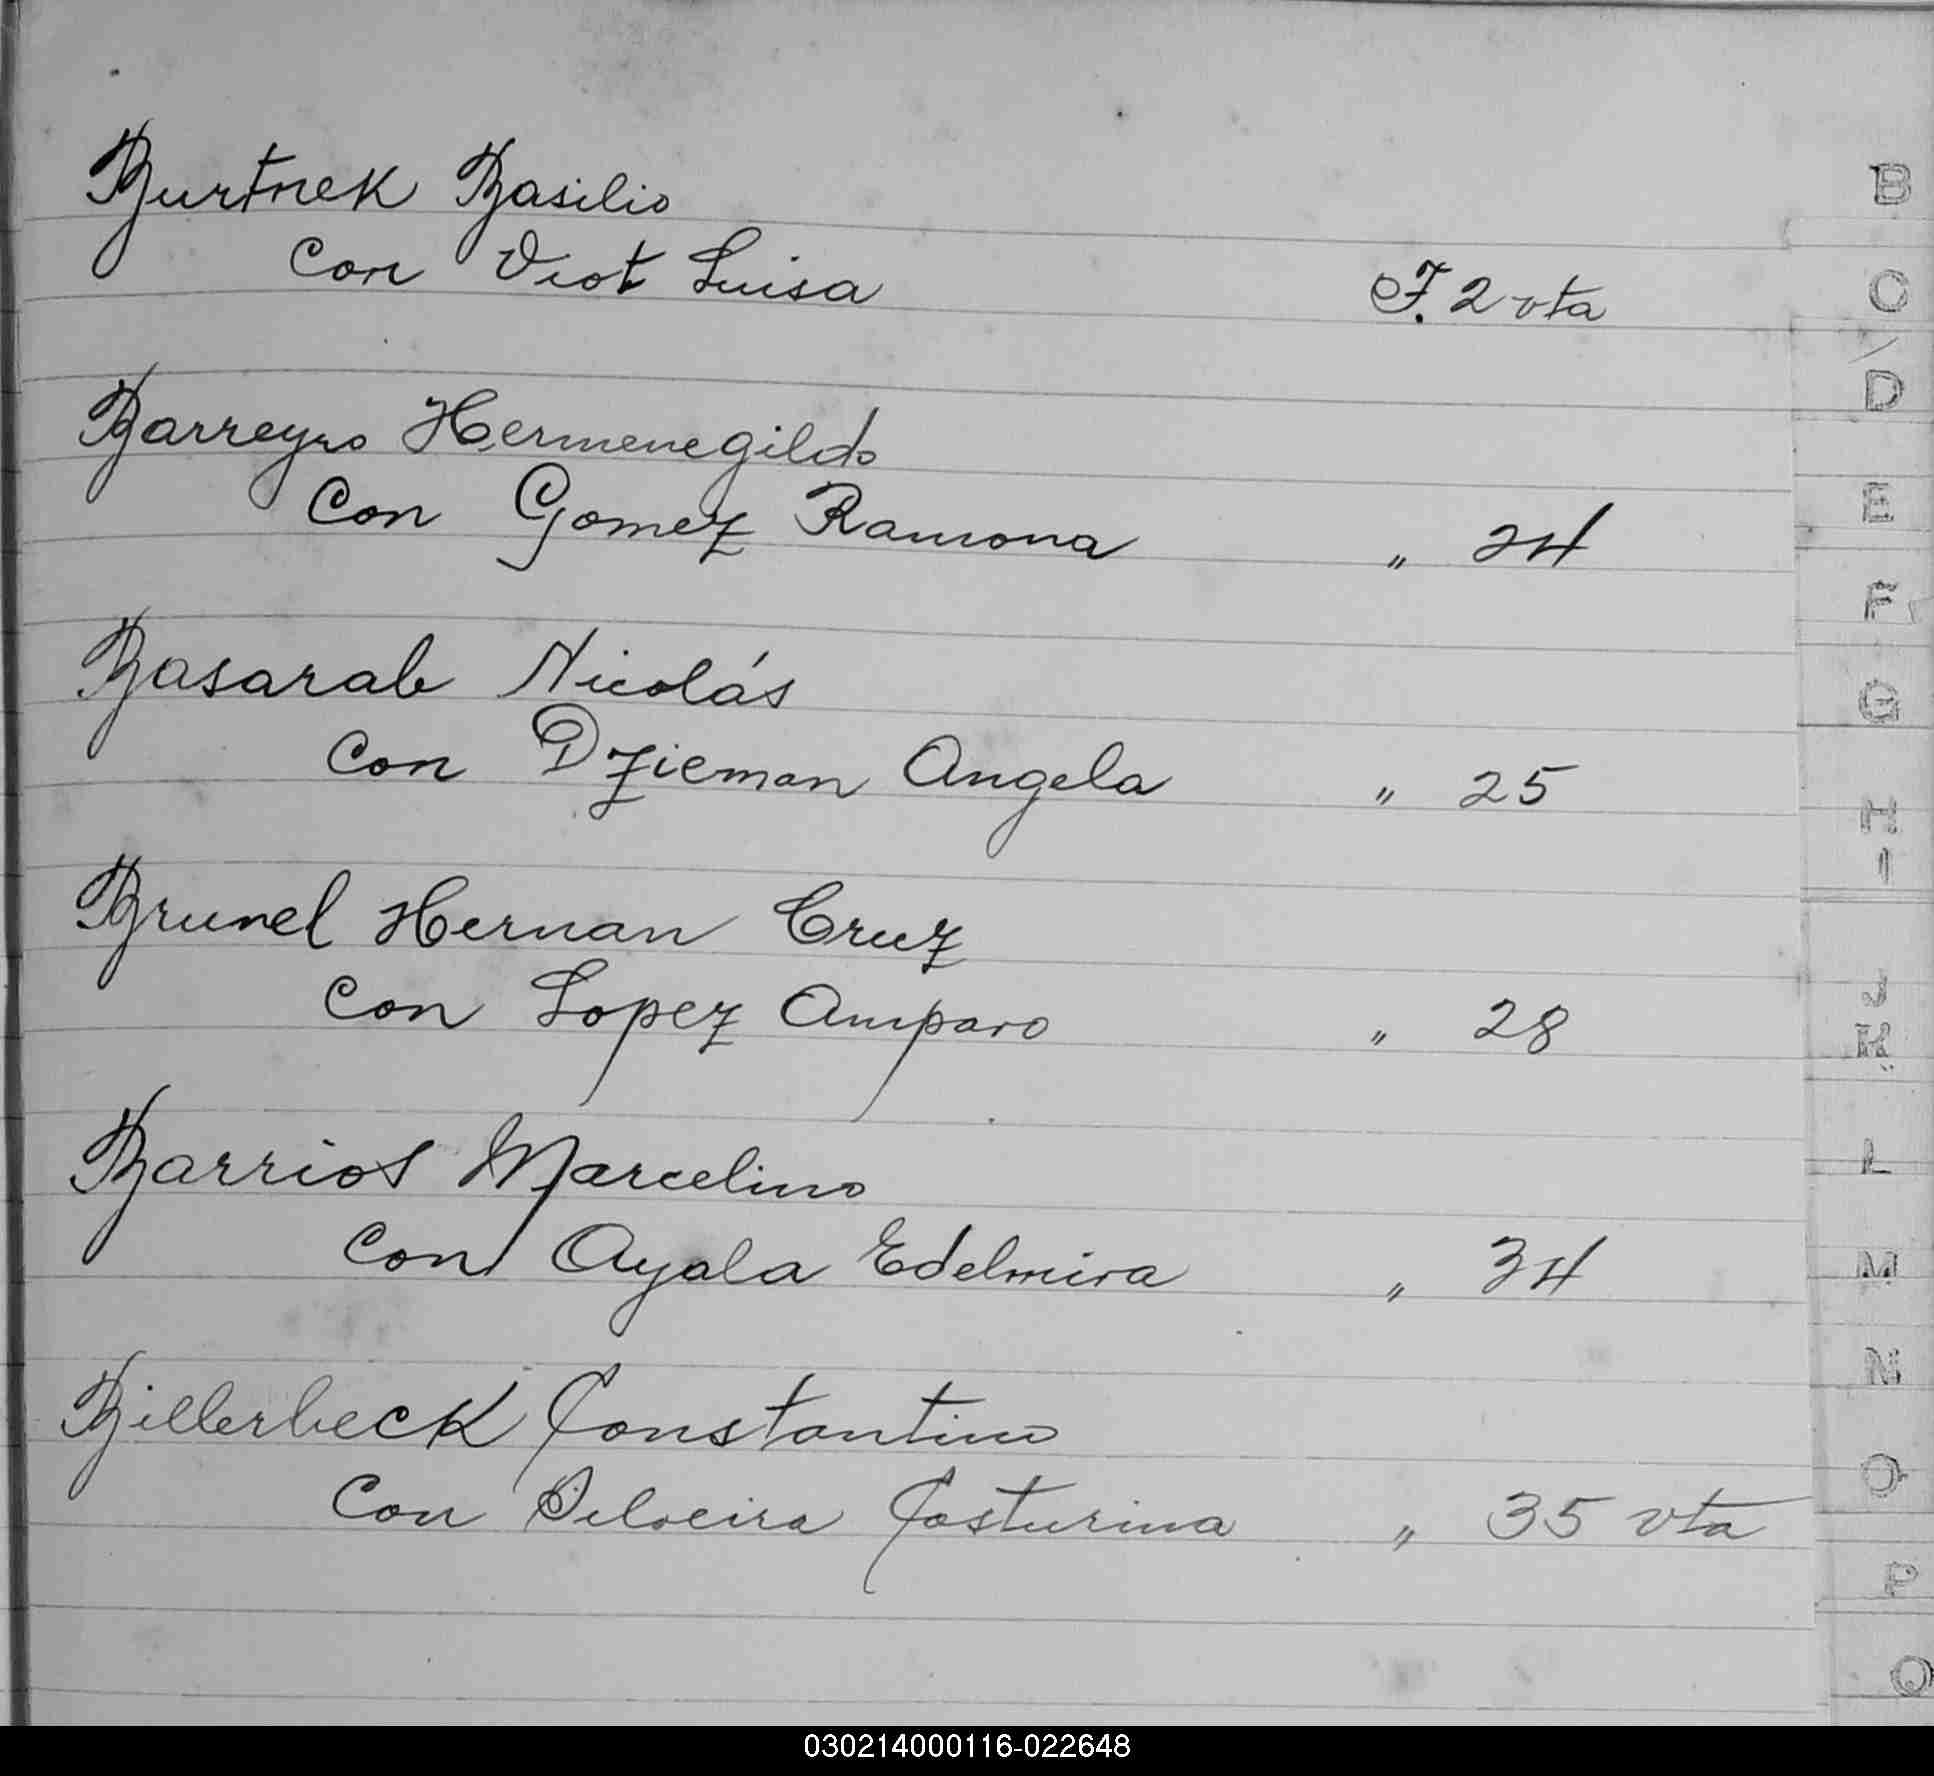 Burtnek Basilio
Con Viot Luisa F. 2 vta
Barreyro Hermenegildo
Con Gomez Ramona " 24
Basarab Nicolás
Con Dzieman Angela " 25
Brunel Hernan Cruz
Con Lopez Amparo " 28
Barrios Marcelino
Con Ayala Edelmira " 34
Billerbeck Constantino
Con Silveira Casturina " 35 vta
B
C
D
E
F
G
H
I
J
K
L
M
N
O
P
Q
030214000116-022648